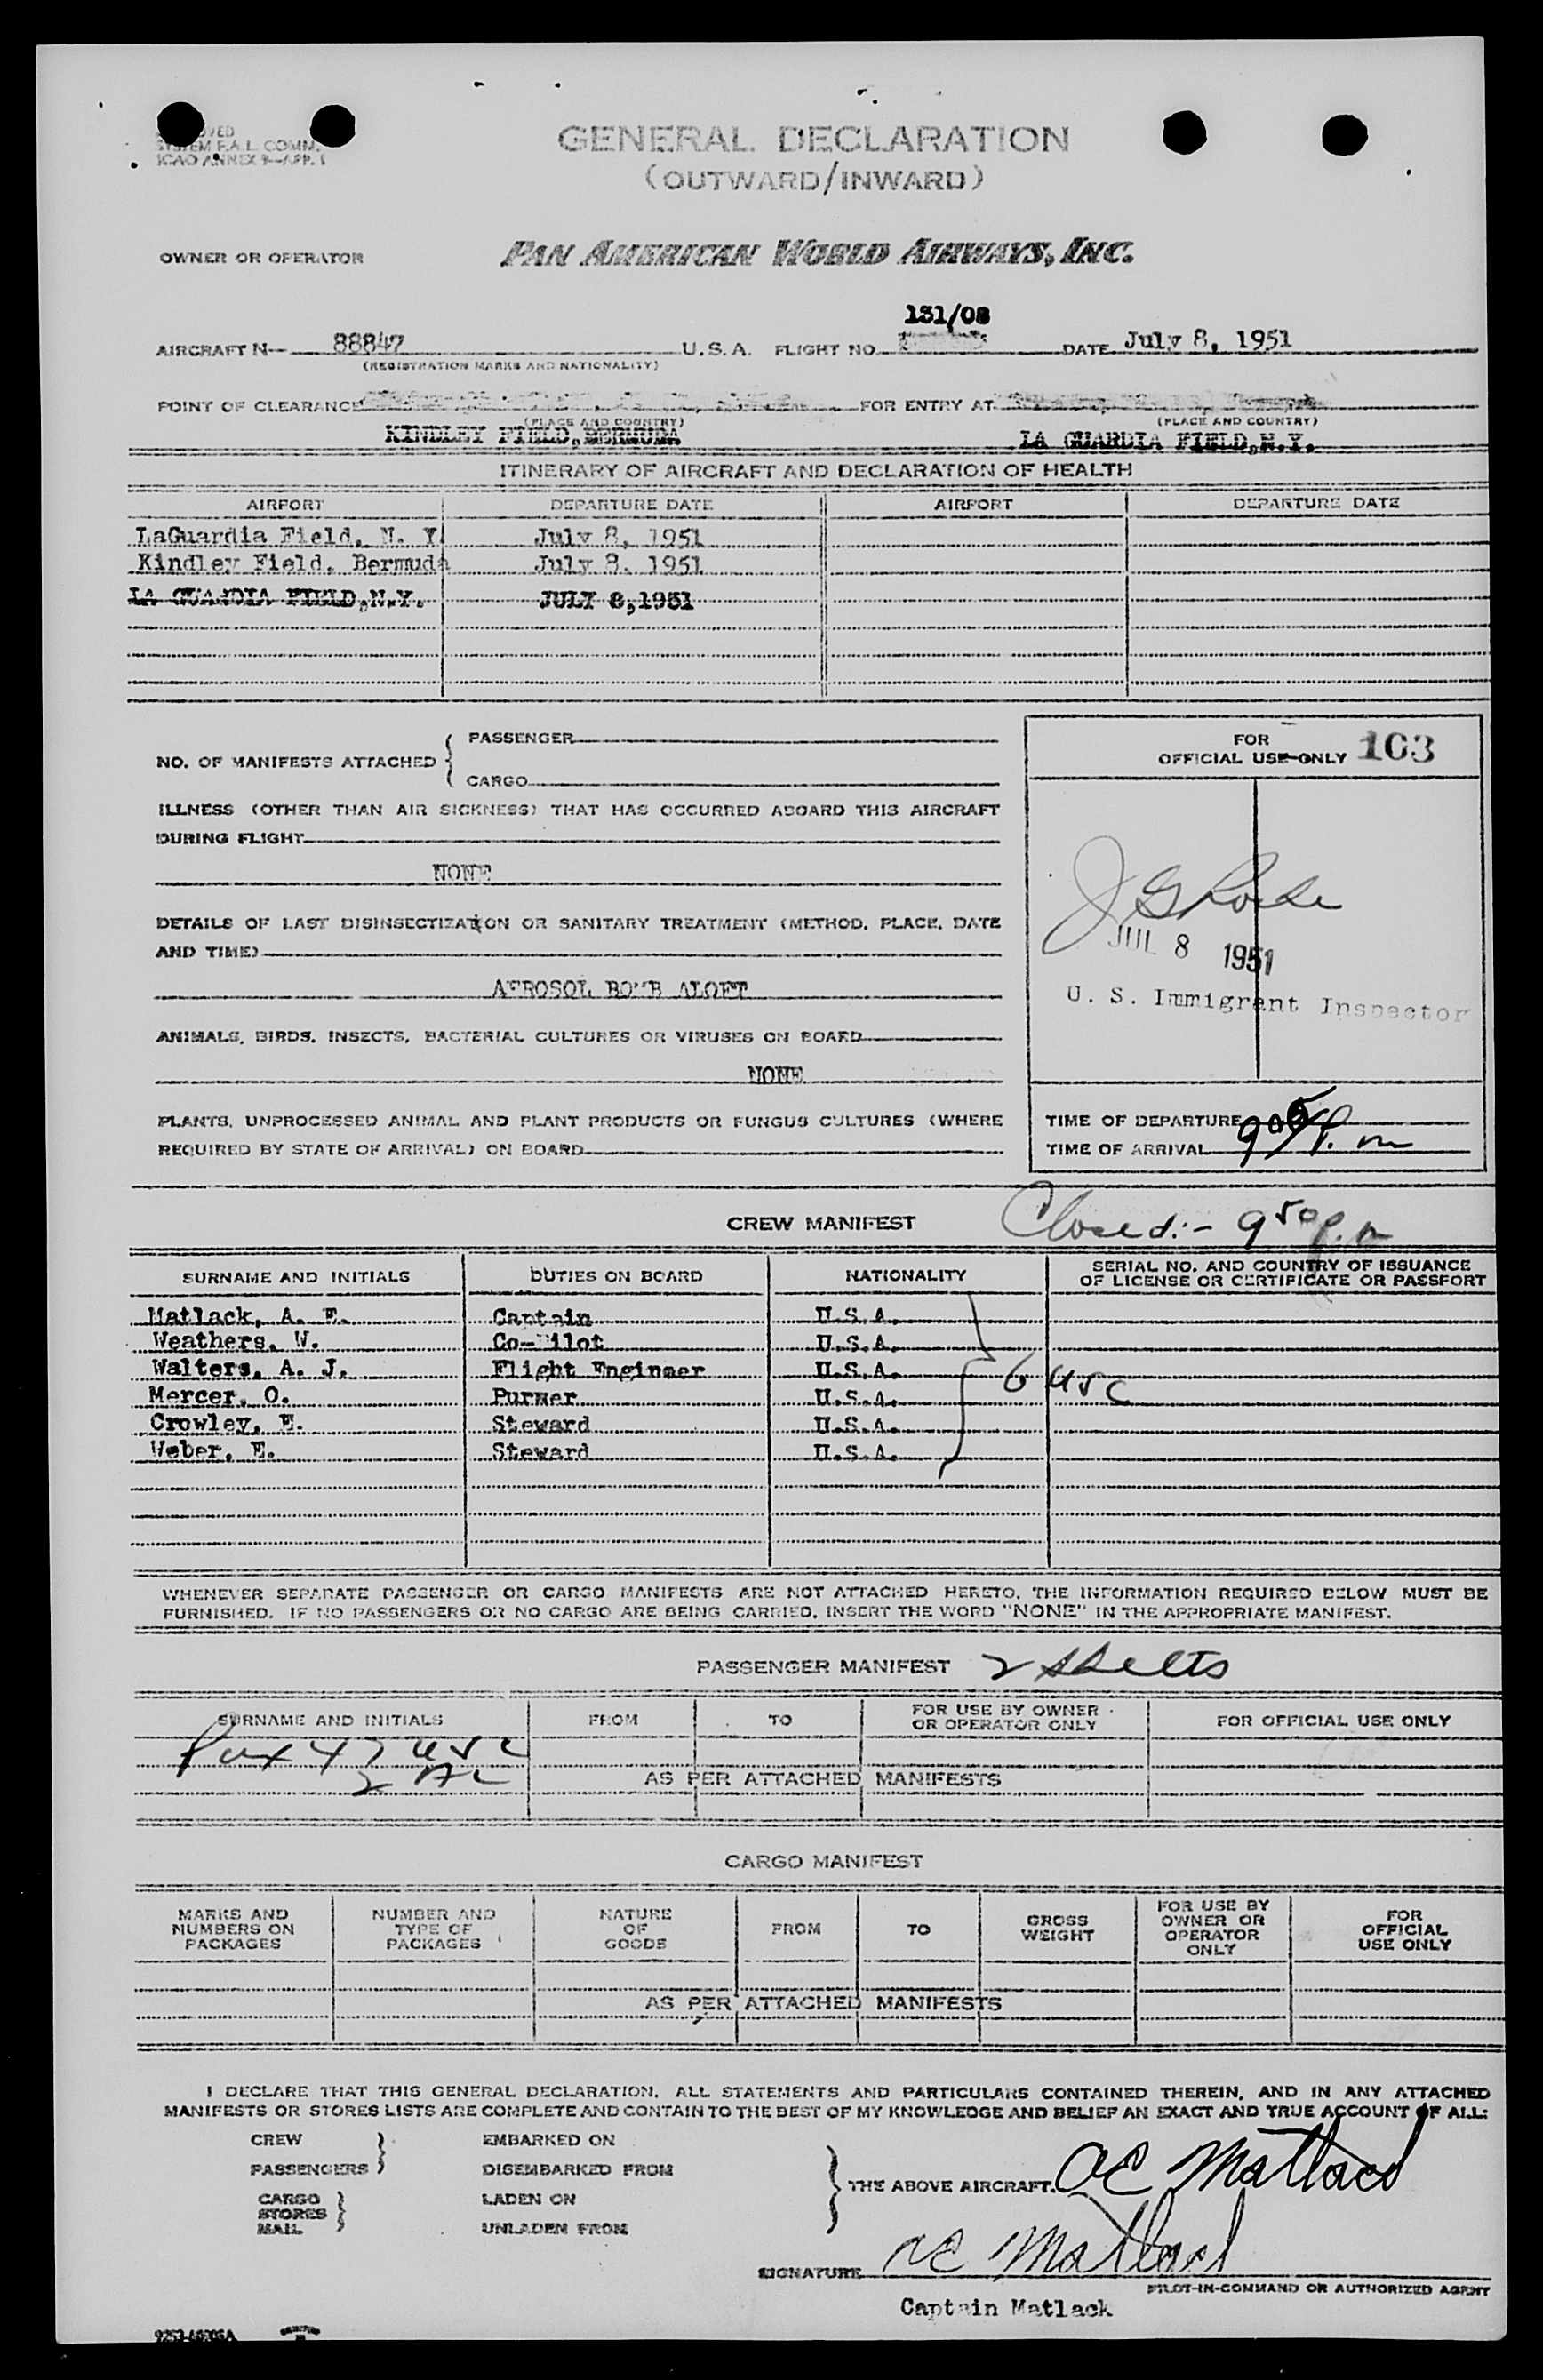 SYSTEM F.A.L. COMM.
ICAO ANNEX 9—APP. 1
GENERAL DECLARATION
(OUTWARD/INWARD)
OWNER OR OPERATOR PAN AMERICAN WORLD AIRWAYS, INC.
131/08
AIRCRAFT N— 88847 U.S.A. FLIGHT NO. DATE July 8, 1951
(REGISTRATION MARKS AND NATIONALITY)
POINT OF CLEARANCE FOR ENTRY AT
(PLACE AND COUNTRY) (PLACE AND COUNTRY)
KINDLEY FIELD, BERMUDA LA GUARDIA FIELD, N.Y.
ITINERARY OF AIRCRAFT AND DECLARATION OF HEALTH
AIRPORT DEPARTURE DATE AIRPORT DEPARTURE DATE
LaGuardia Field, N. Y. July 8, 1951
Kindley Field, Bermuda July 8, 1951
LA GUARDIA FIELD,N.Y. JULY 8,1951
NO. OF MANIFESTS ATTACHED { PASSENGER
CARGO
FOR
OFFICIAL USE ONLY 103
ILLNESS (OTHER THAN AIR SICKNESS) THAT HAS OCCURRED ABOARD THIS AIRCRAFT
DURING FLIGHT
NONE
DETAILS OF LAST DISINSECTIZATION OR SANITARY TREATMENT (METHOD, PLACE, DATE
AND TIME)
AEROSOL BOMB ALOFT
JUL 8 1951
U. S. Immigrant Inspector
ANIMALS, BIRDS, INSECTS, BACTERIAL CULTURES OR VIRUSES ON BOARD
NONE
PLANTS, UNPROCESSED ANIMAL AND PLANT PRODUCTS OR FUNGUS CULTURES (WHERE
REQUIRED BY STATE OF ARRIVAL) ON BOARD
TIME OF DEPARTURE
TIME OF ARRIVAL 905 P.m
CREW MANIFEST Closed:- 950 p.m
SURNAME AND INITIALS DUTIES ON BOARD NATIONALITY SERIAL NO. AND COUNTRY OF ISSUANCE
OF LICENSE OR CERTIFICATE OR PASSPORT
Matlack, A. E. Captain U.S.A.
Weathers, W. Co-Pilot U.S.A.
Walters, A. J. Flight Engineer U.S.A.
Mercer, O. Purser U.S.A. 6 USC
Crowley, E. Steward U.S.A.
Weber, E. Steward U.S.A.
WHENEVER SEPARATE PASSENGER OR CARGO MANIFESTS ARE NOT ATTACHED HERETO, THE INFORMATION REQUIRED BELOW MUST BE
FURNISHED. IF NO PASSENGERS OR NO CARGO ARE BEING CARRIED, INSERT THE WORD "NONE" IN THE APPROPRIATE MANIFEST.
PASSENGER MANIFEST 2 sheets
SURNAME AND INITIALS FROM TO FOR USE BY OWNER
OR OPERATOR ONLY FOR OFFICIAL USE ONLY
Pax 47 USC
2 AL
AS PER ATTACHED MANIFESTS
CARGO MANIFEST
MARKS AND
NUMBERS ON
PACKAGES NUMBER AND
TYPE OF
PACKAGES NATURE
OF
GOODS FROM TO GROSS
WEIGHT FOR USE BY
OWNER OR
OPERATOR
ONLY FOR
OFFICIAL
USE ONLY
AS PER ATTACHED MANIFESTS
I DECLARE THAT THIS GENERAL DECLARATION, ALL STATEMENTS AND PARTICULARS CONTAINED THEREIN, AND IN ANY ATTACHED
MANIFESTS OR STORES LISTS ARE COMPLETE AND CONTAIN TO THE BEST OF MY KNOWLEDGE AND BELIEF AN EXACT AND TRUE ACCOUNT OF ALL:
CREW EMBARKED ON
PASSENGERS DISEMBARKED FROM
CARGO LADEN ON
STORES
MAIL UNLADEN FROM
THE ABOVE AIRCRAFT. AE Matlack
SIGNATURE AE Matlack
PILOT-IN-COMMAND OR AUTHORIZED AGENT
Captain Matlack